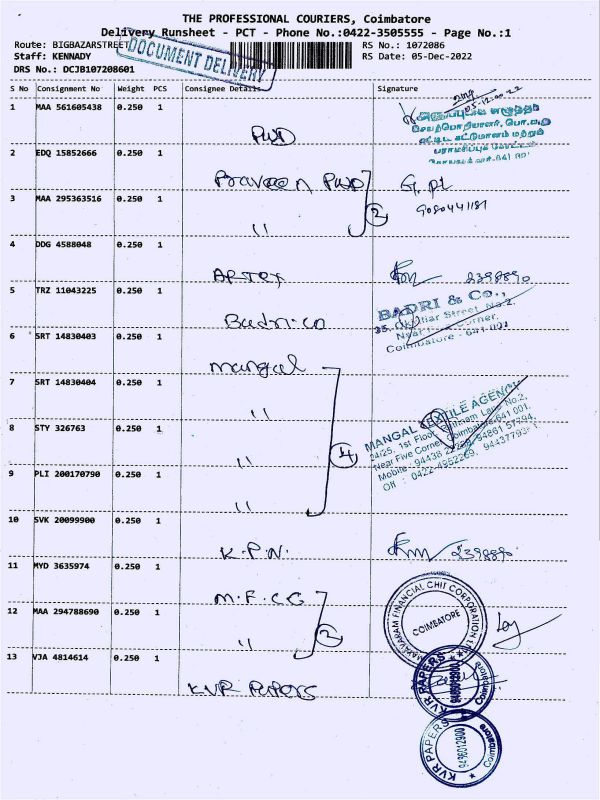 THE PROFESSIONAL COURIERS, Coimbatore
Delivery Runsheet - PCT - Phone No.:0422-3505555 - Page No.:1
Route: BIGBAZARSTREET
RS No.: 1072086
Staff: KENNADY
RS Date: 05-Dec-2022
DOCUMENT DELIVERY
DRS No.: DCJB107208601
S No Consignment No Weight PCS Consignee Details Signature
1 MAA 561605438 0.250 1 PWD
2 EDQ 15852666 0.250 1 Praveen PWD
3 MAA 295363516 0.250 1 〃 2
4 DDG 4588048 0.250 1
5 TRZ 11043225 0.250 1 Badri.co
BADRI & Co.,
Coimbatore - 641 001
6 SRT 14830403 0.250 1 mangal
7 SRT 14830404 0.250 1 〃
8 STY 326763 0.250 1 〃 4
MANGAL TEXTILE AGENCY
24/25, 1st Floor,
Near Five Corner, Coimbatore-641 001.
9 PLI 200170790 0.250 1 〃
10 SVK 20099900 0.250 1 K.P.N.
11 MYD 3635974 0.250 1 M.F.C.C
12 MAA 294788690 0.250 1 〃 2
FINANCIAL CHIT CORPORATION
COIMBATORE
13 VJA 4814614 0.250 1 KVR PAPERS
KVR PAPERS
Coimbatore
KVR PAPERS
9496012900
Coimbatore